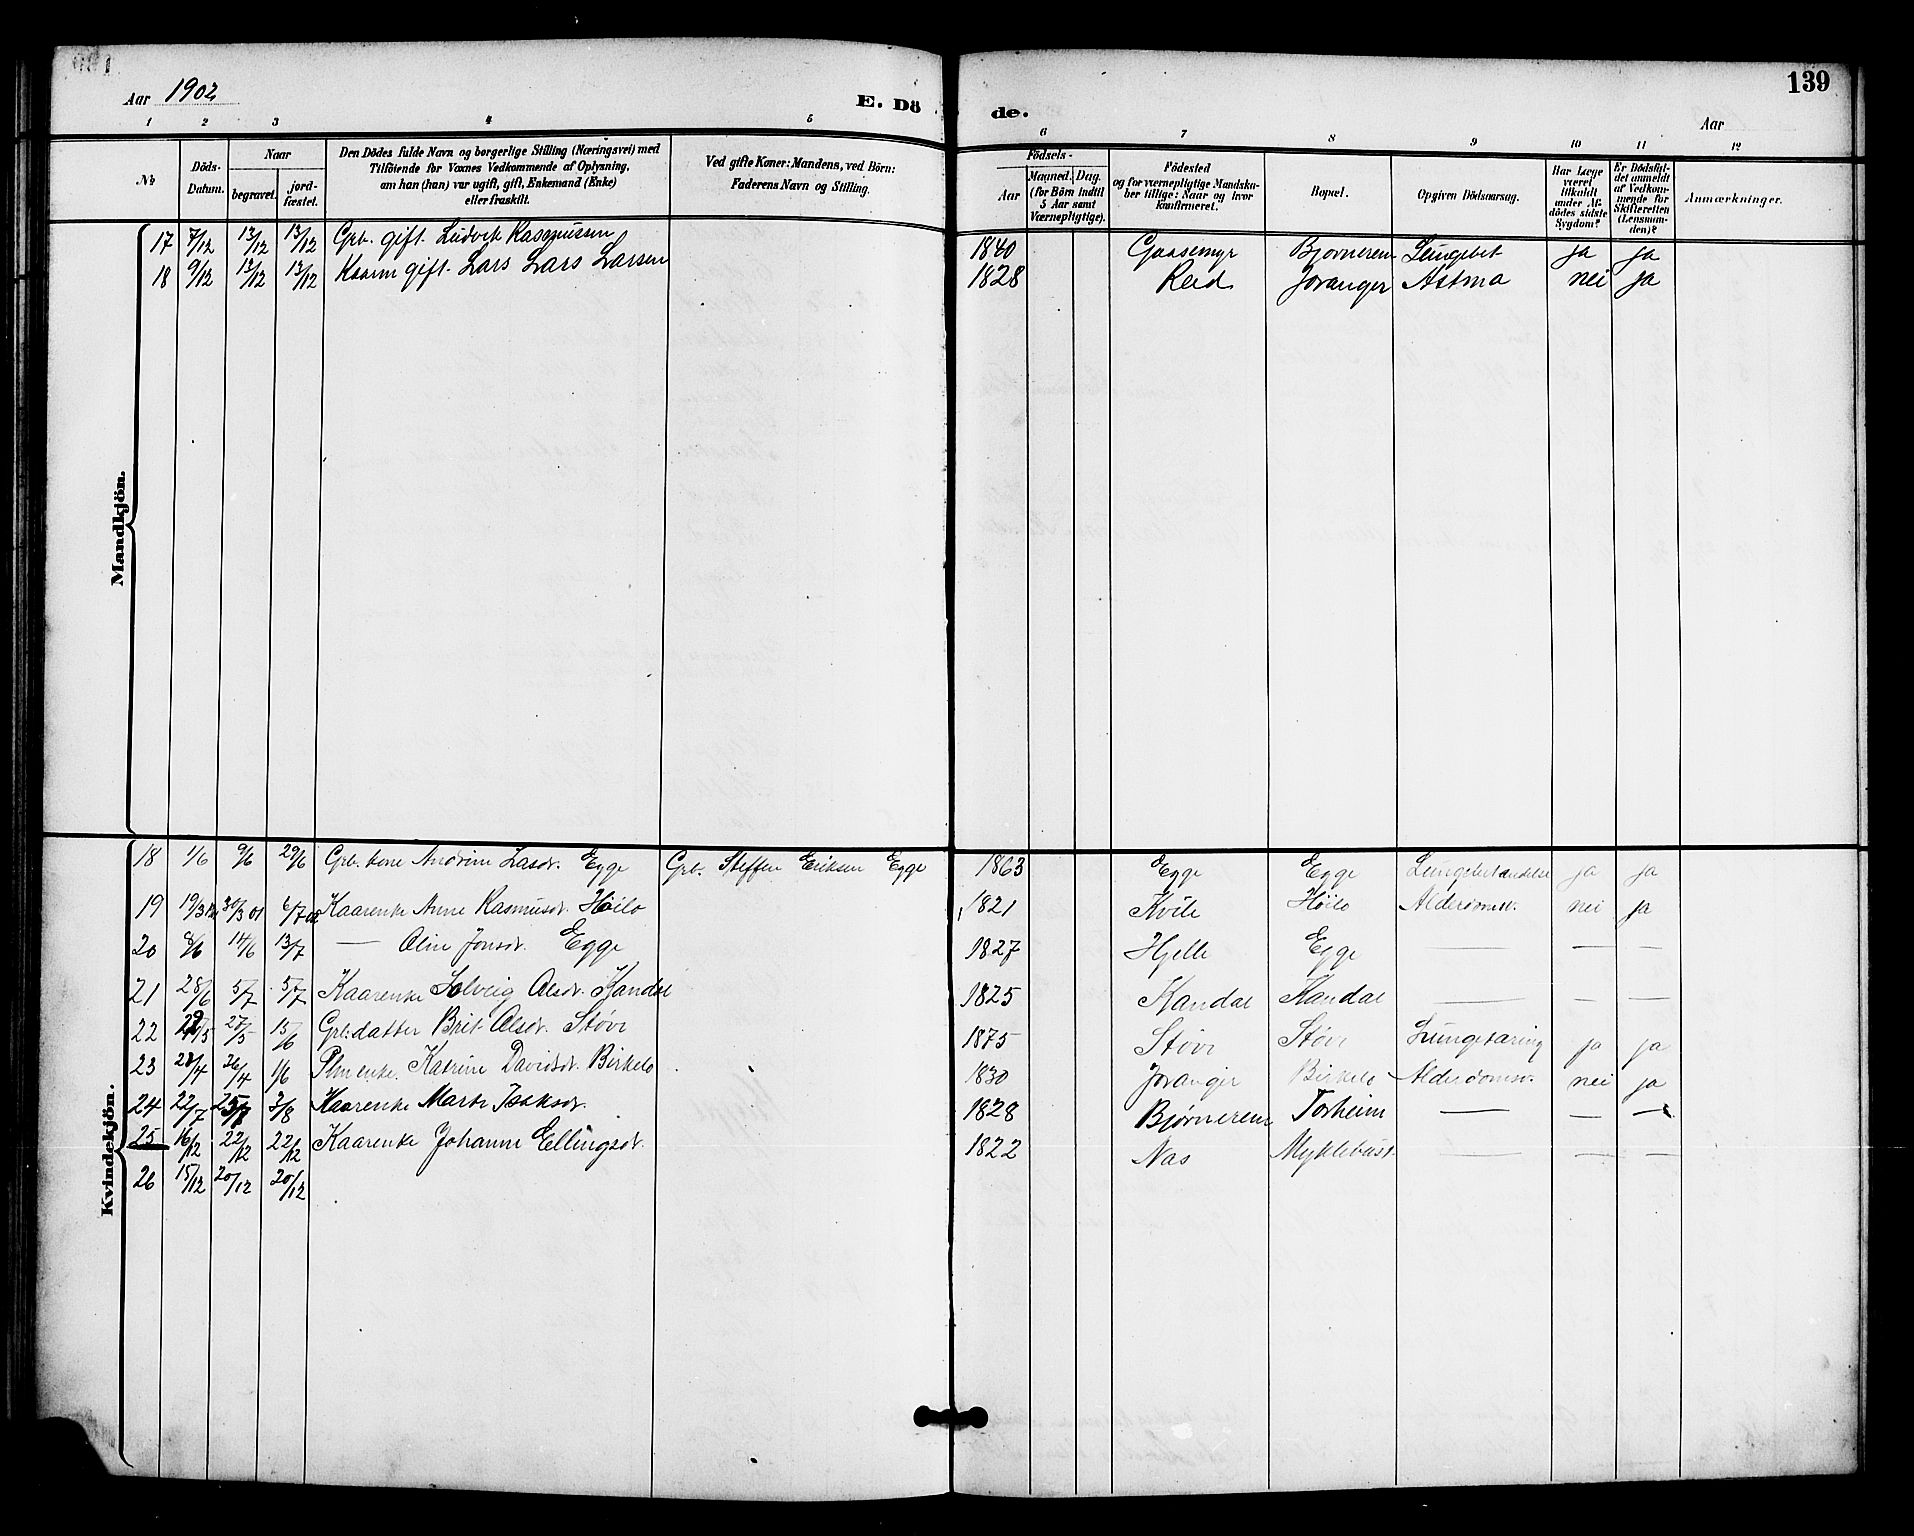 Aar 1902
E. Dö de.
139
Aar
1 2 3 4 5 6 7 8 9 10 11 12
№
Döds-Datum.
Naar
begravet.
jord-fæstet.
Den Dödes fulde Navn og borgerlige Stilling (Næringsvei) med
Tilföiende for Voxnes Vedkommende af Oplysning,
om han (hun) var ugift, gift, Enkemand (Enke)
eller fraskilt.
Ved gifte Koner: Mandens, ved Börn:
Faderens Navn og Stilling.
Födsels-
Aar
Maaned. Dag.
(for Börn indtil
5 Aar samt
Værnepligtige).
Födested
og for værnepligtige Mandska-
ber tillige: Naar og hvor
konfirmeret.
Bopæl.
Opgiven Dödsaarsag.
Har Læge
været
tilkaldt
under Af-
dödes sidste
Sygdom?
Er Dödsfal-
det anmeldt
af Vedkom-
mende for
Skifteretten
(Lensman-
den)?
Anmærkninger.
Mandkjön.
17 7/12 13/12 13/12 Grb. gift. Ludvik Rasmussen 1840 Gaasemyr Bjørnerem Lungebet ja ja
18 9/12 13/12 13/12 Kaarm gift. Lars Lars Larsen 1828 Reed Joranger Astma nei ja
Kvindekjön.
18 1/6 9/6 29/6 Grb. kone Andrine Lasdr. Egge Grb. Steffen Eriksen Egge 1863 Egge Egge Lungebetændelse ja ja
19 19/3 30/3 01 6/7 Kaarenke Anne Rasmusdr. Høilo 1821 Kvile Høilo Alderdomsv. nei ja
20 8/6 14/6 13/7 — Oline Jonsdr. Egge 1827 Hjelle Egge — — —
21 28/6 5/7 5/7 Kaarenke Solveig Olsdr. Kandal 1825 Kandal Kandal — — —
22 22/5 27/5 15/6 Grb.datter Brit Olsdr. Støve 1875 Støve Støve Lungetæring ja ja
23 21/4 26/4 1/6 Plm enke. Katrine Davidsdr. Birkelo 1830 Joranger Birkelo Alderdomsv. nei ja
24 22/7 25/7 3/8 Kaarenke Marte Isaksdr. 1828 Bjørnerem Torheim — — —
25 16/12 22/12 22/12 Kaarenke Johanne Ellingsdr. 1822 Nas Myklebust — — —
26 15/12 20/12 20/12